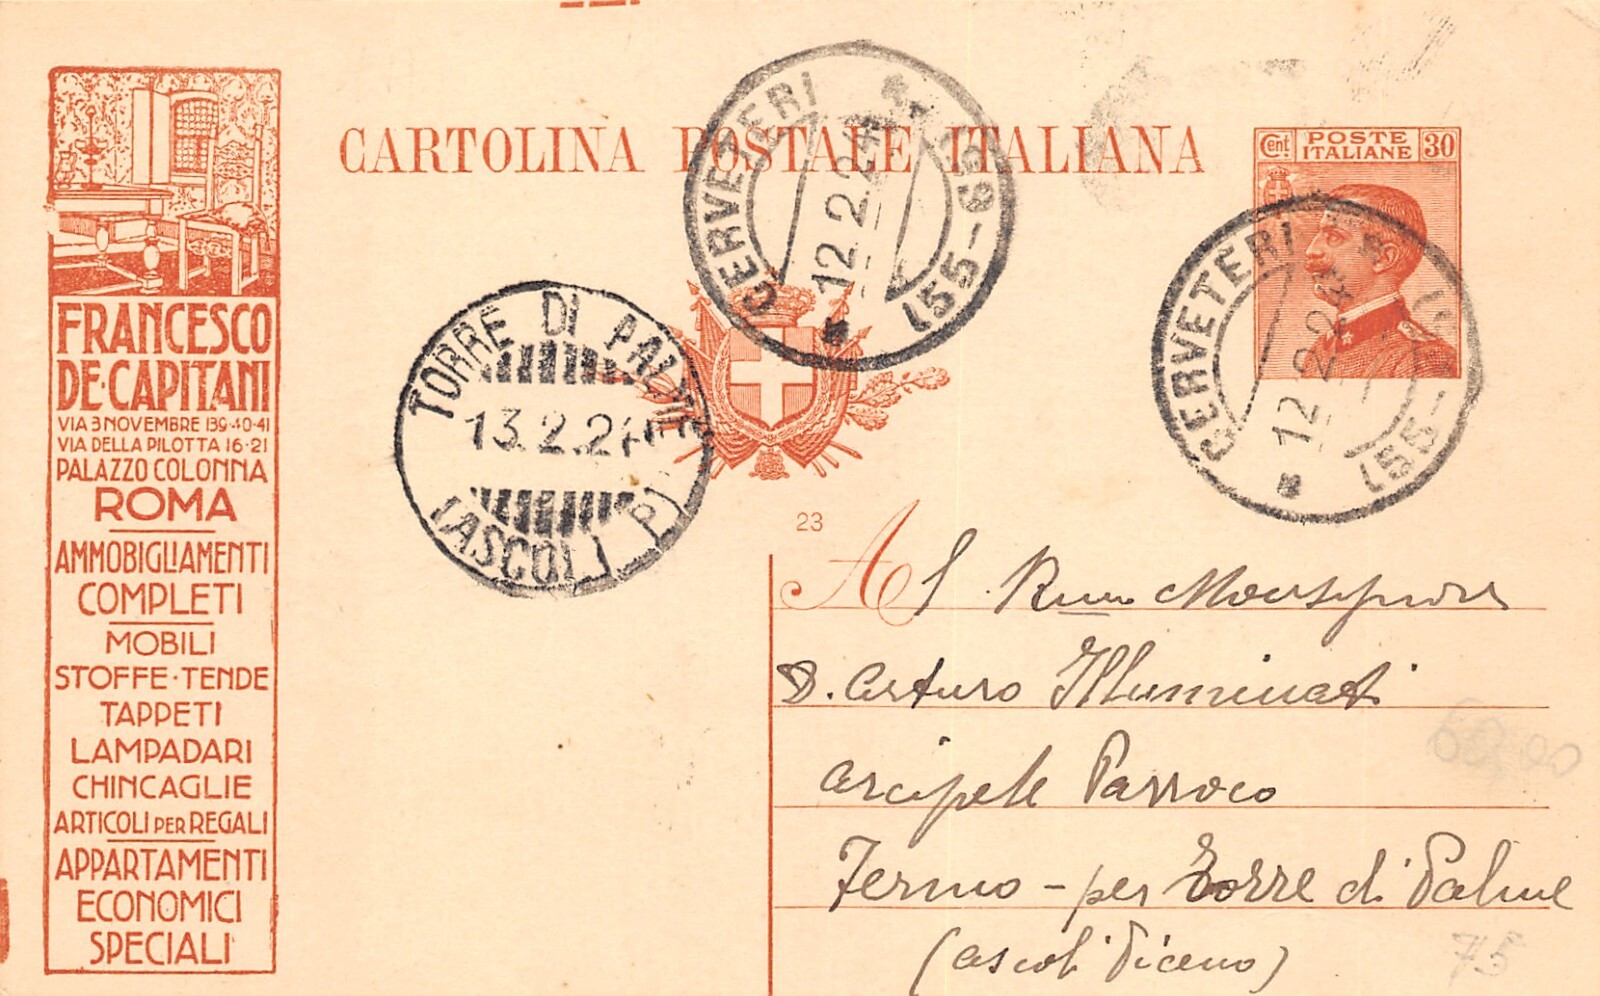 CARTOLINA POSTALE ITALIANA
Cent POSTE ITALIANE 30
FRANCESCO
DE·CAPITANI
VIA 3 NOVEMBRE 139·40·41
VIA DELLA PILOTTA 16·21
PALAZZO COLONNA
ROMA
AMMOBIGLIAMENTI
COMPLETI
MOBILI
STOFFE·TENDE
TAPPETI
LAMPADARI
CHINCAGLIE
ARTICOLI PER REGALI
APPARTAMENTI
ECONOMICI
SPECIALI
CERVETERI
12.2.24
(55-
TORRE DI PALME
13.2.24
(ASCOLI P)
CERVETERI
12.2.24
(55-
23
Al Rmo Monsignore
D. Arturo Illuminati
arciprete Parroco
Fermo - per Torre di Palme
(ascoli Piceno)
60,00
75